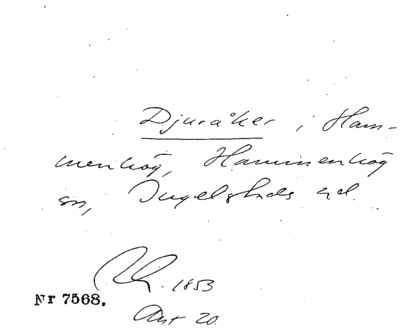 Djuråker i Ham-
menhög, Hammenhög
sn, Ingelstads hd.
1853
Nr 7568.
20